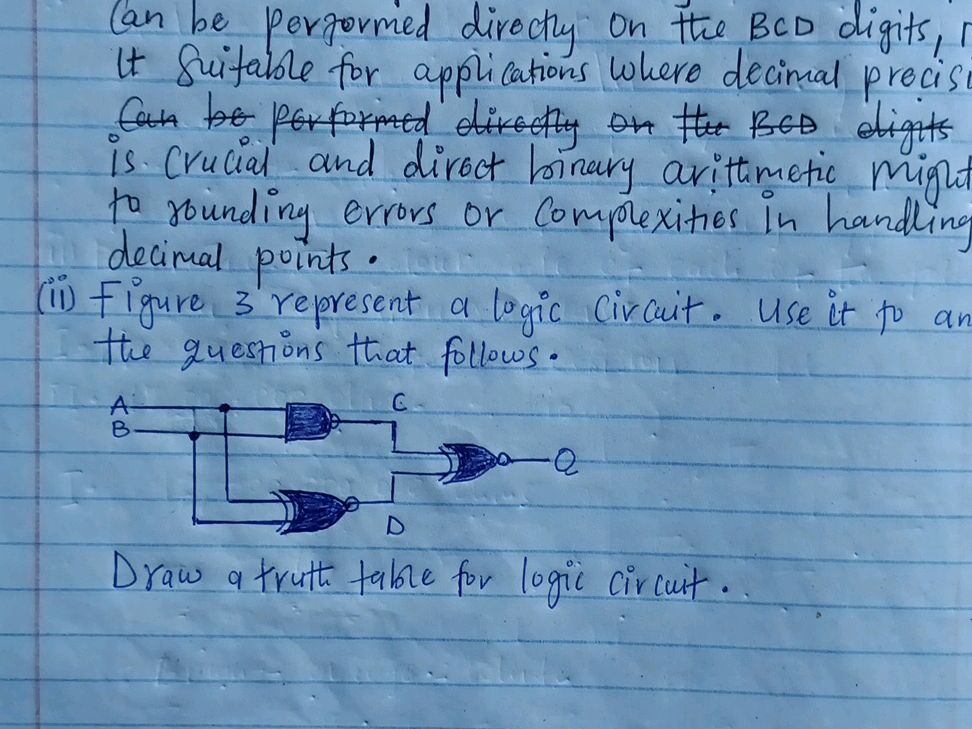 Can be performed directly on the BCD digits,
it suitable for applications where decimal precisi
Can be performed directly on the BCD digits
is crucial and direct binary arithmetic might
to rounding errors or complexities in handling
decimal points.
(ii) Figure 3 represent a logic circuit. Use it to an
the questions that follows.
A
B
C
Q
D
Draw a truth table for logic circuit.